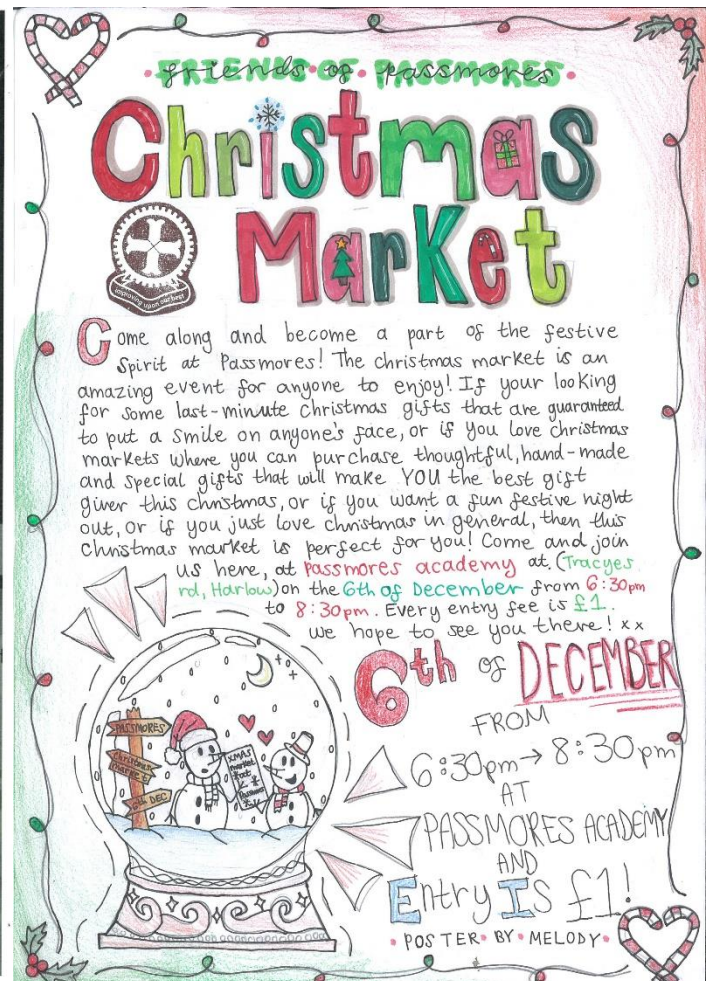 • FRIENDS • OF • PASSMORES •
Christmas
Market
improving upon our best
Come along and become a part of the festive
Spirit at Passmores! The christmas market is an
amazing event for anyone to enjoy! If your looking
for some last-minute christmas gifts that are guaranteed
to put a smile on anyone's face, or if you love christmas
markets where you can purchase thoughtful, hand-made
and special gifts that will make YOU the best gift
giver this christmas, or if you want a fun festive night
out, or if you just love christmas in general, then this
christmas market is perfect for you! Come and join
us here, at Passmores academy at (Tracyes
rd, Harlow) on the 6th of December from 6:30pm
to 8:30pm. Every entry fee is £1.
we hope to see you there! xx
6th of DECEMBER
FROM
6:30pm → 8:30pm
AT
PASSMORES ACADEMY
AND
Entry Is £1!
• POSTER • BY • MELODY •
PASSMORES
Christmas
market
6th DEC
XMAS
market